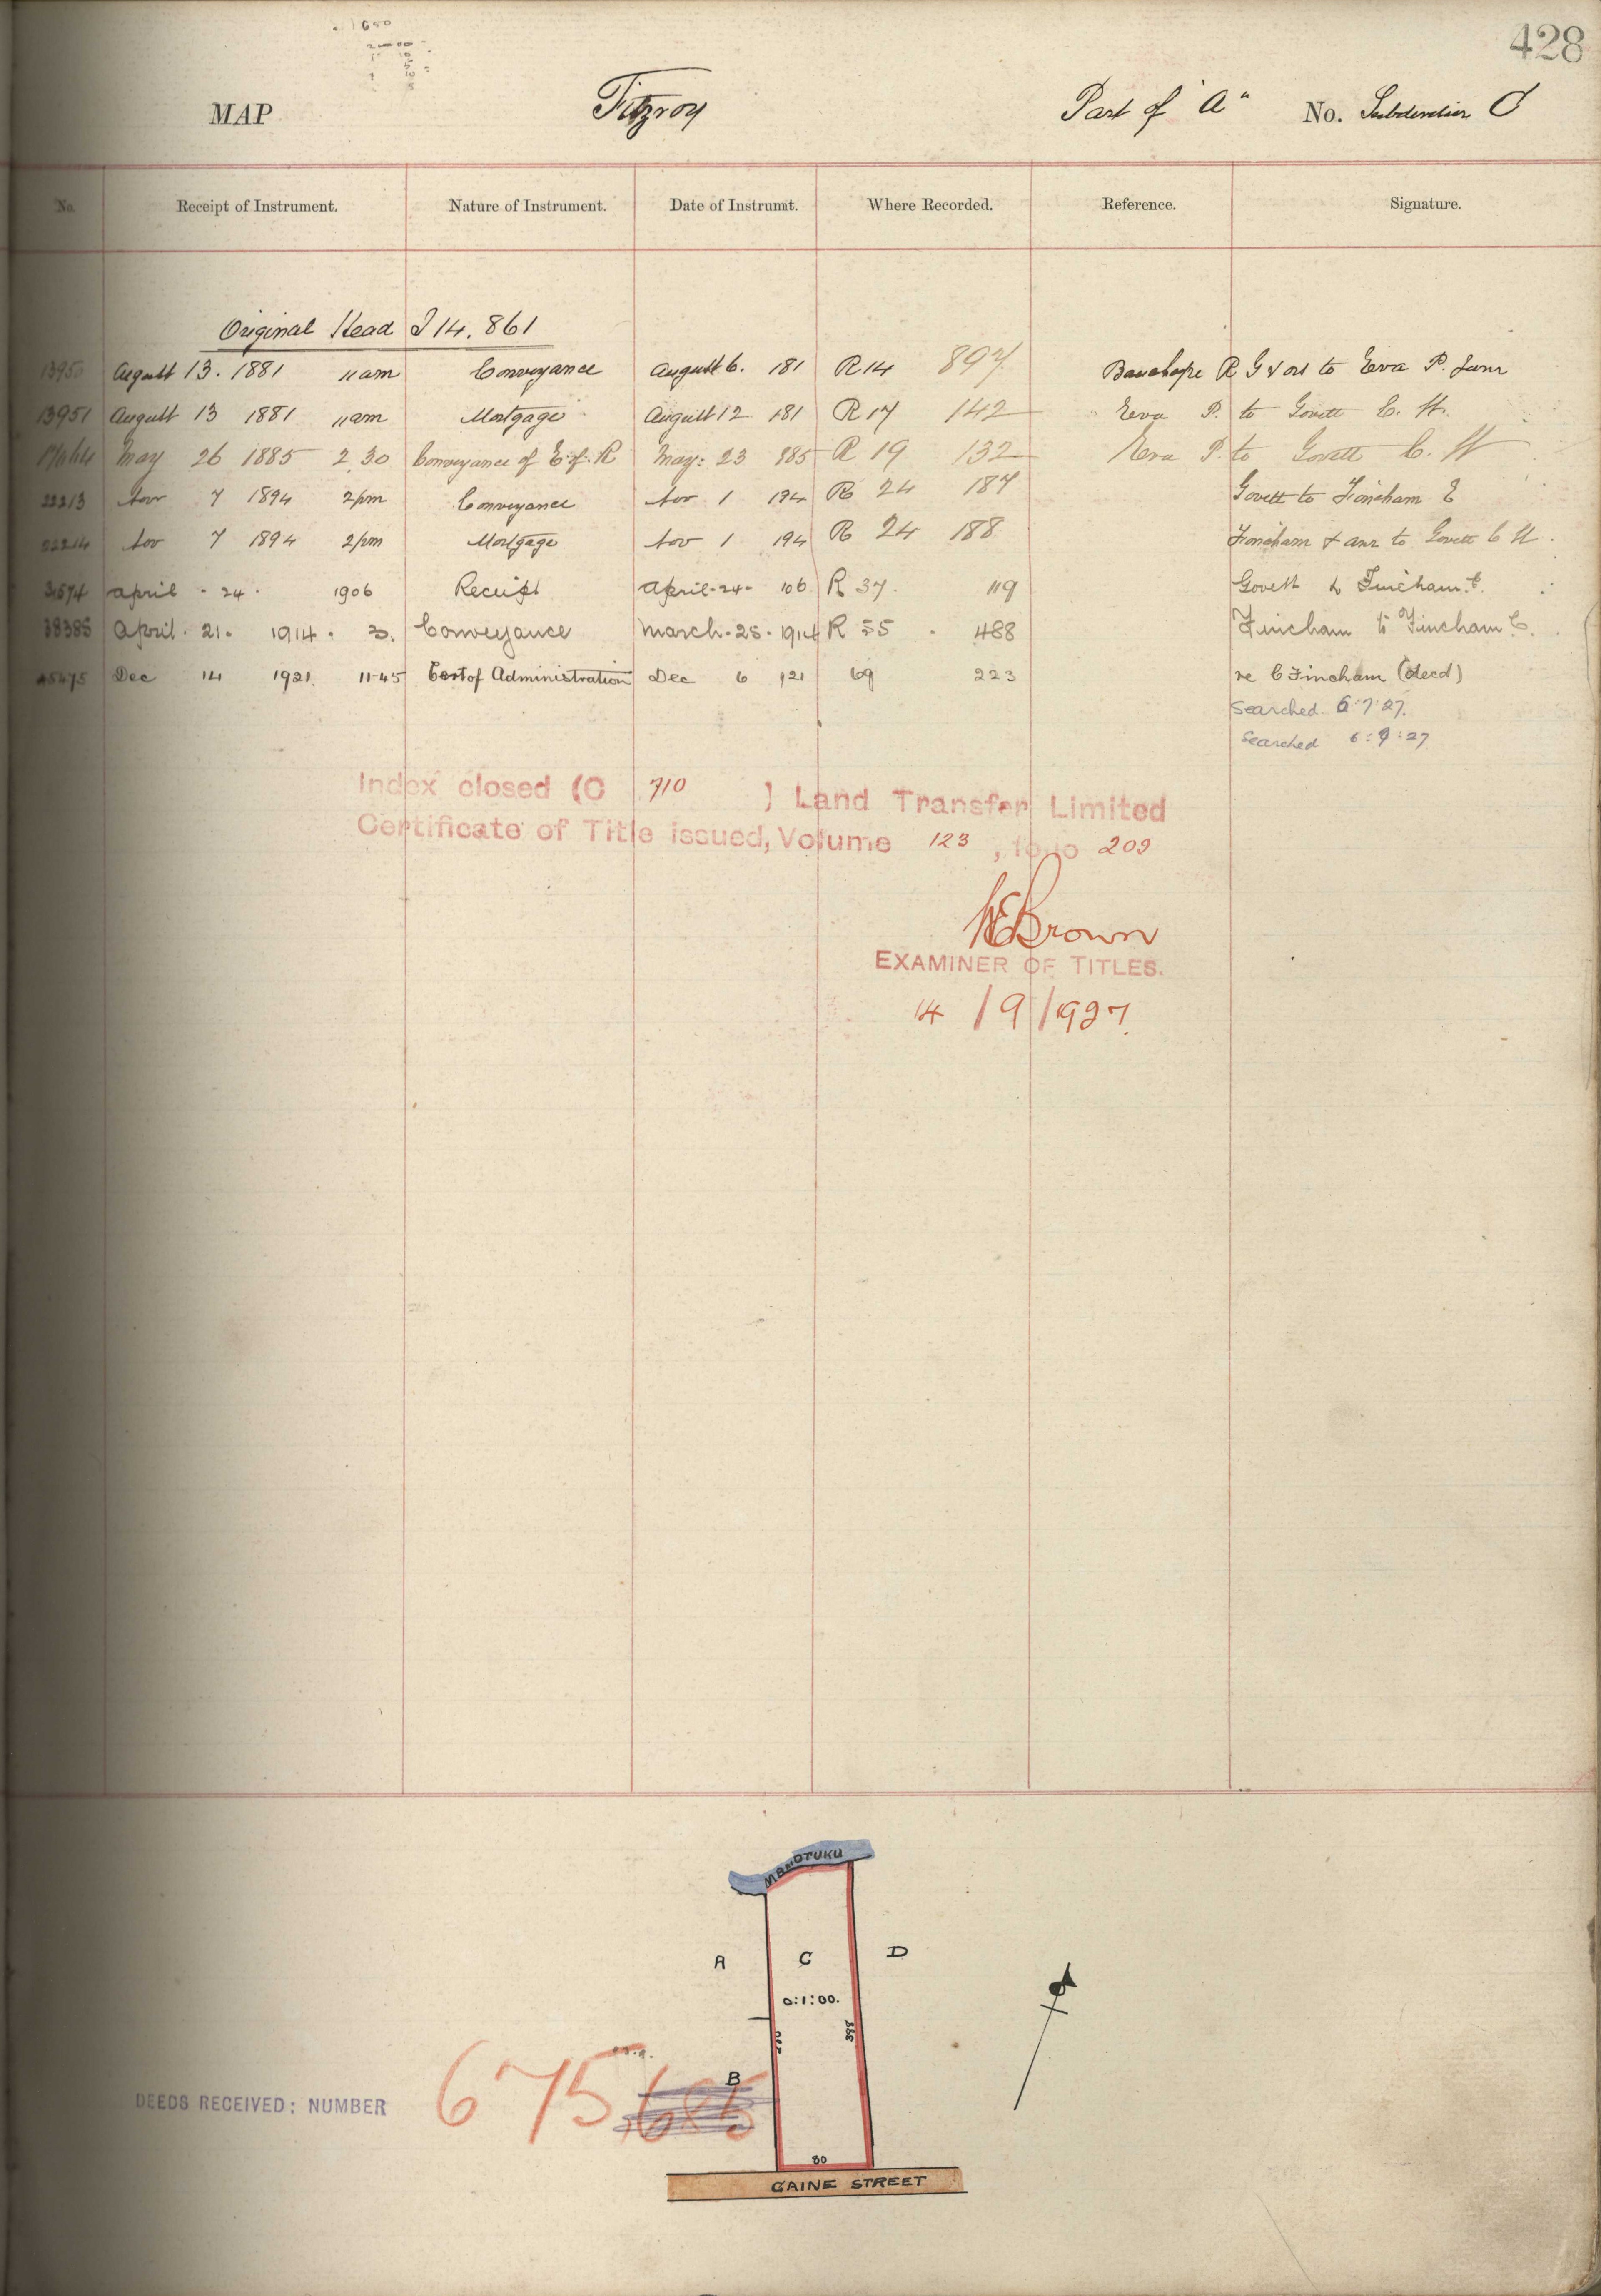 428
MAP Fitzroy Part of "A" No. Subdivision C
No. Receipt of Instrument. Nature of Instrument. Date of Instrumt. Where Recorded. Reference. Signature.
Original Head I 14. 861
13950 August 13. 1881 11am Conveyance August 6. 181 R 14 897 R G & ors to Eva P. Junr
13951 August 13 1881 11am Mortgage August 12 181 R 17 142 Eva P. to Govett C. H.
May 26 1885 2.30 Conveyance of E. of. R May: 23 885 R 19 132 Eva P. to Govett C. H
22213 Nov 7 1894 2pm Conveyance Nov 1 194 R 24 187 Govett to Fincham E
22214 Nov 7 1894 2pm Mortgage Nov 1 194 R 24 188 Fincham & anr to Govett C H.
31574 April - 24. 1906 Receipt April-24- 106 R 37. 119 Govett to Fincham. E.
38385 April. 21. 1914. 3. Conveyance March. 25. 1914 R 55. 488 Fincham to Fincham C.
45475 Dec 14 1921. 11-45 Cert of Administration Dec 6 121 69 223 re C Fincham (decd)
Searched 6:7:27.
Searched 6:9:27
Index closed (C 710 ) Land Transfer Limited
Certificate of Title issued, Volume 123, folio 209
Brown
EXAMINER OF TITLES.
14/9/1927.
MANGOTUKU
A C D
0:1:00.
333
B
DEEDS RECEIVED: NUMBER 675
80
GAINE STREET